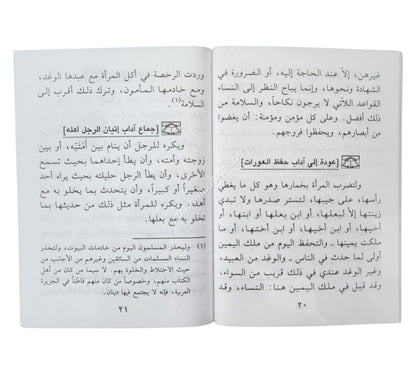 غيرهن، إلاّ عند الحاجة إليه، أو الضرورة في
الشهادة ونحوها، وإنما يباح النظر إلى النساء
القواعد اللآتي لا يرجون نكاحاً، والسلامة من
ذلك أفضل. وعلى كل مؤمن ومؤمنة: أن يغضوا
من أبصارهم، ويحفظوا فروجهم.
[عودة إلى آداب حفظ العورات]
ولتضرب المرأة بخمارها وهو كل ما يغطي
رأسها، على جيبها، لتستر صدرها ولا تبدي
زينتها إلاّ لبعلها، أو ابن بعلها أو ابنها، أو
أبيها، أو ابن أخيها، أو ابن أختها، أو ما
ملكت يمينها ـ والتحفظ اليوم من ملك اليمين
أولى لما حدث في الناس ـ والوغد من العبيد،
وغير الوغد عندي في ذلك قريب من السواء،
وقد قيل في ملك اليمين هنا: النساء، وقد
٢٠
وردت الرخصة في أكل المرأة مع عبدها الوغد،
ومع خادمها المأمون، وترك ذلك أقرب إلى
السلامة(١).
[جماع آداب إتيان الرجل أهله]
ويكره للرجل أن ينام بين أَمَتَيْه، أو بين
زوجته وأمته، وأن يطأ إحداهما بحيث تسمع
الأخرى، وأن يطأ الرجل حليلته بحيث يراه أحد
صغيراً أو كبيراً، وأن يتحدث بما يخلو به مع
أهله، ويكره للمرأة مثل ذلك من حديثها بما
تخلو به مع بعلها.
(١) وليحذر المسلمون اليوم من خادمات البيوت، ولتحذر
النساء المسلمات من السائقين وغيرهم من الأجانب من
حيث الاختلاط والخلوة بهم. لا سيما من كان من أهل
الكتاب منهم، وخصوصاً من كان منهم قاطناً في الجزيرة
العربية، فإنه لا يجتمع فيها دينان.
٢١